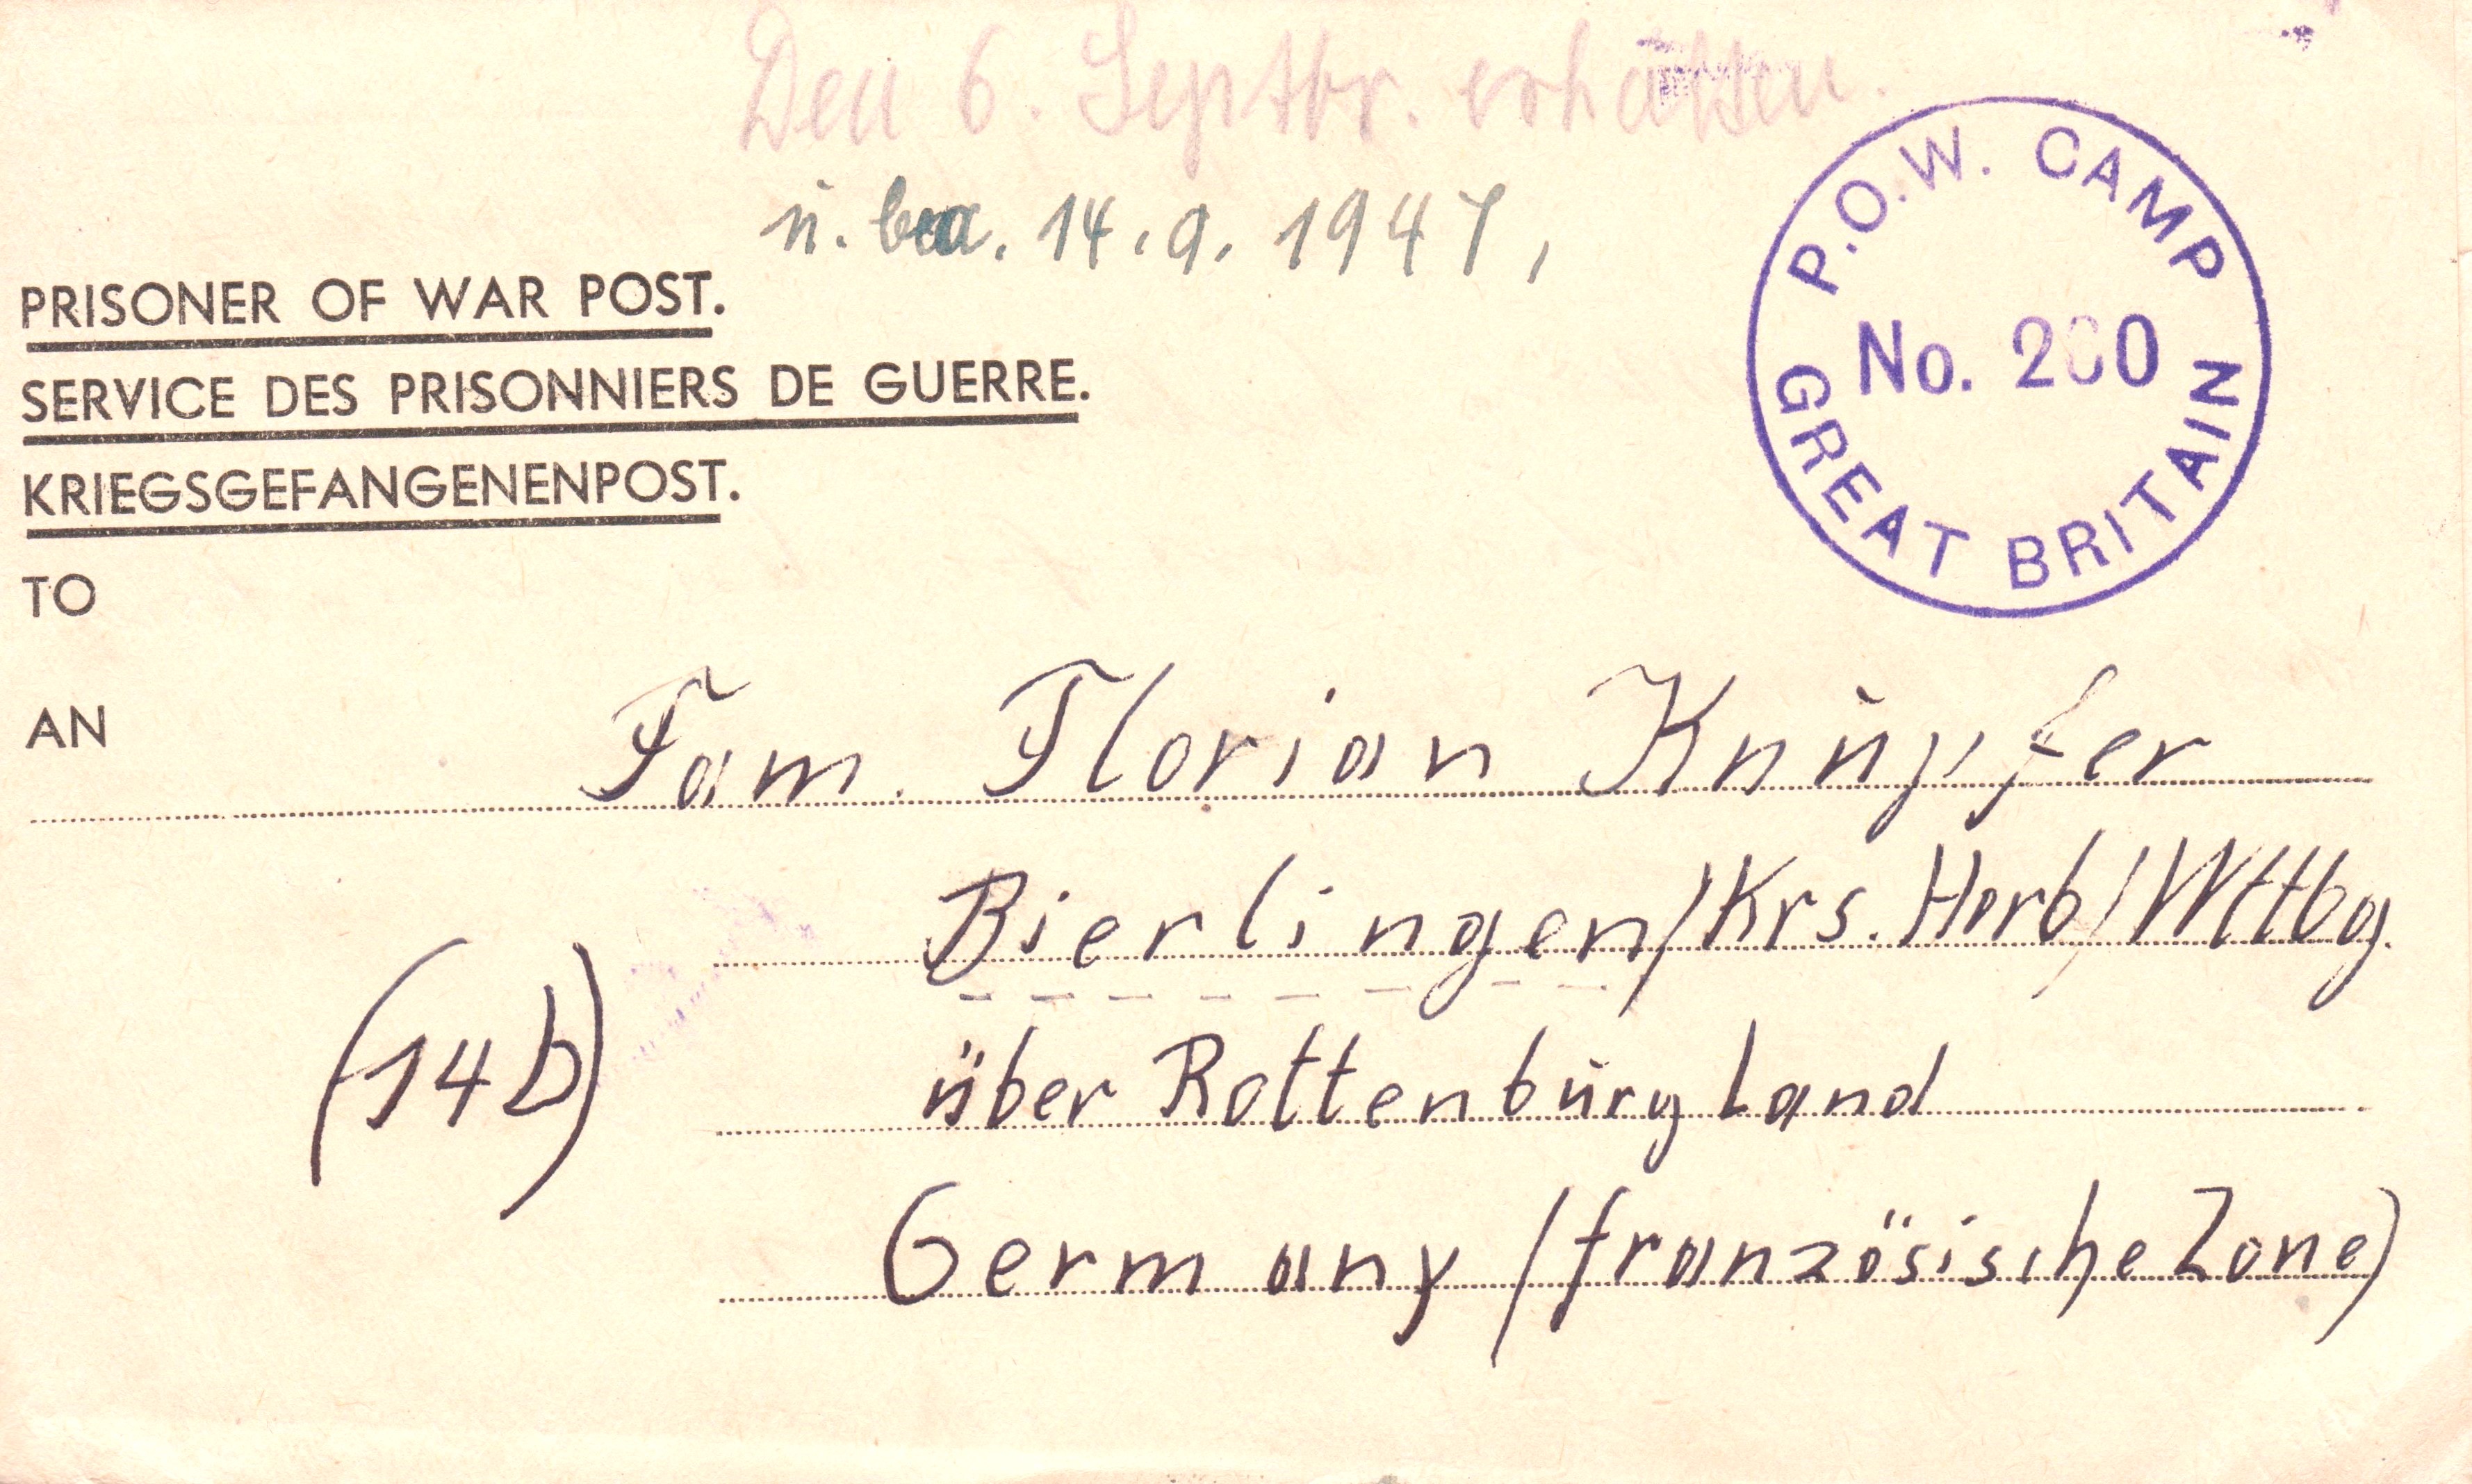 Den 6. Septbr. erhalten.
u. bea. 14.9.1947,
P.O.W. CAMP
No. 200
GREAT BRITAIN
PRISONER OF WAR POST.
SERVICE DES PRISONNIERS DE GUERRE.
KRIEGSGEFANGENENPOST.
TO
AN
Fam. Florian Knüpfer
Bierlingen/Krs. Horb/Wttbg.
(14b)
über Rottenburg Land
Germany (französische Zone)